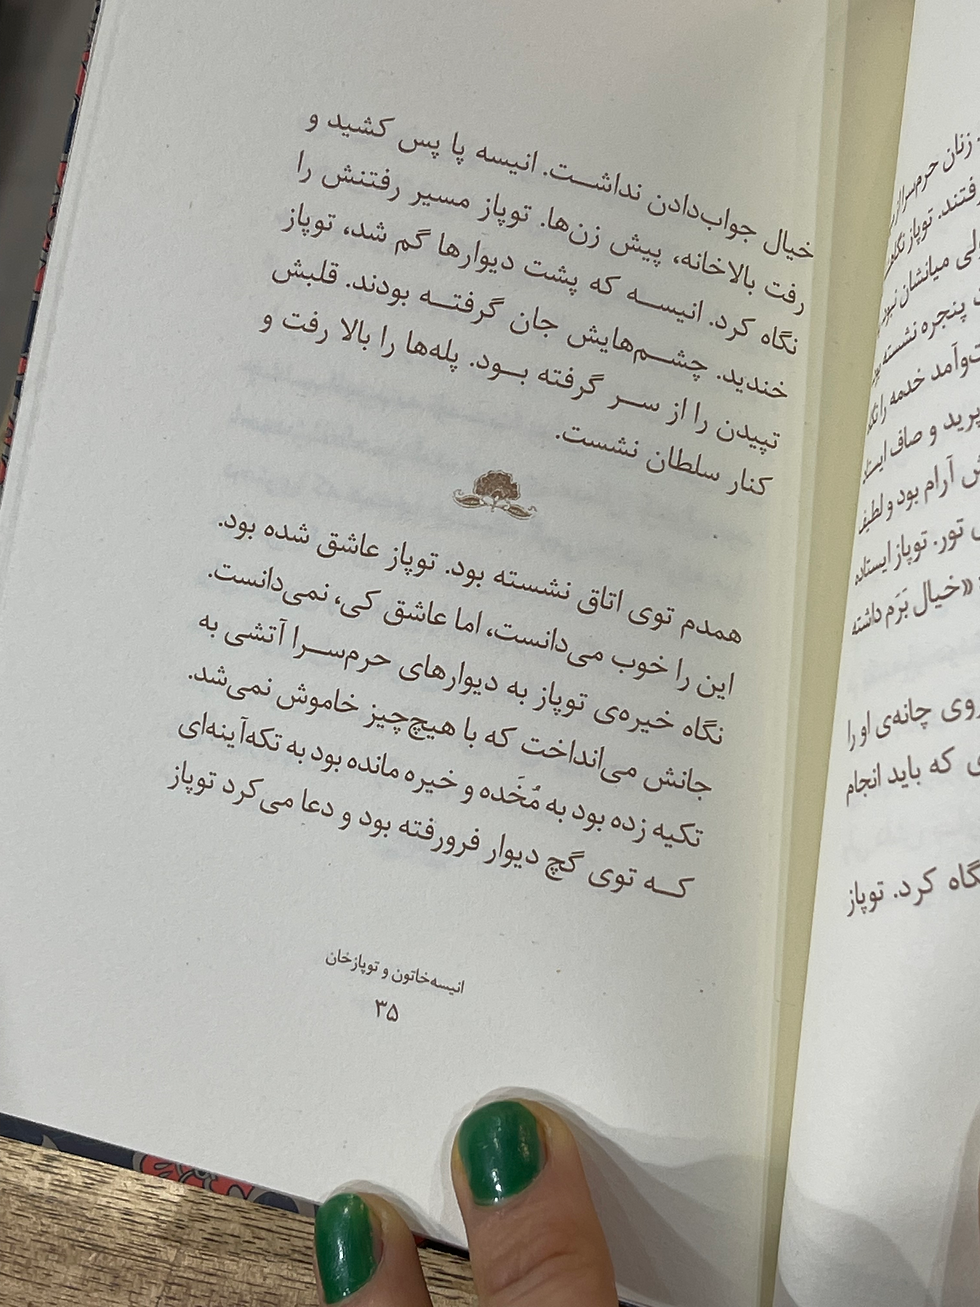 خیال جواب‌دادن نداشــت. انیسه پا پس کشید و
رفت بالاخانه، پیش زن‌ها. توپاز مسیر رفتنش را
نگاه کرد. انیســه که پشت دیوارها گم شد، توپاز
خندید. چشــم‌هایش جان گرفتــه بودند. قلبش
تپیدن را از ســر گرفته بــود. پله‌ها را بالا رفت و
کنار سلطان نشست.
همدم توی اتاق نشسته بود. توپاز عاشق شده بود.
این را خوب می‌دانست، اما عاشق کی، نمی‌دانست.
نگاه خیره‌ی توپاز به دیوارهای حرم‌ســرا آتشی به
جانش می‌انداخت که با هیچ‌چیز خاموش نمی‌شد.
تکیه زده بود به مُخَده و خیره مانده بود به تکه‌آینه‌ای
کــه توی گچ دیوار فرورفته بود و دعا می‌کرد توپاز
انیسه‌خاتون و توپازخان
۳۵
زنان حرم‌سرا از
فتند. توپاز
میانشان نبود
پنجره نشسته
ت‌وآمد خدمه را
پرید و صاف
ش آرام بود و لطیف
تور. توپاز ایستاده
«خیال بَرَم داشته
روی چانه‌ی او را
ی که باید انجام
گاه کرد. توپاز